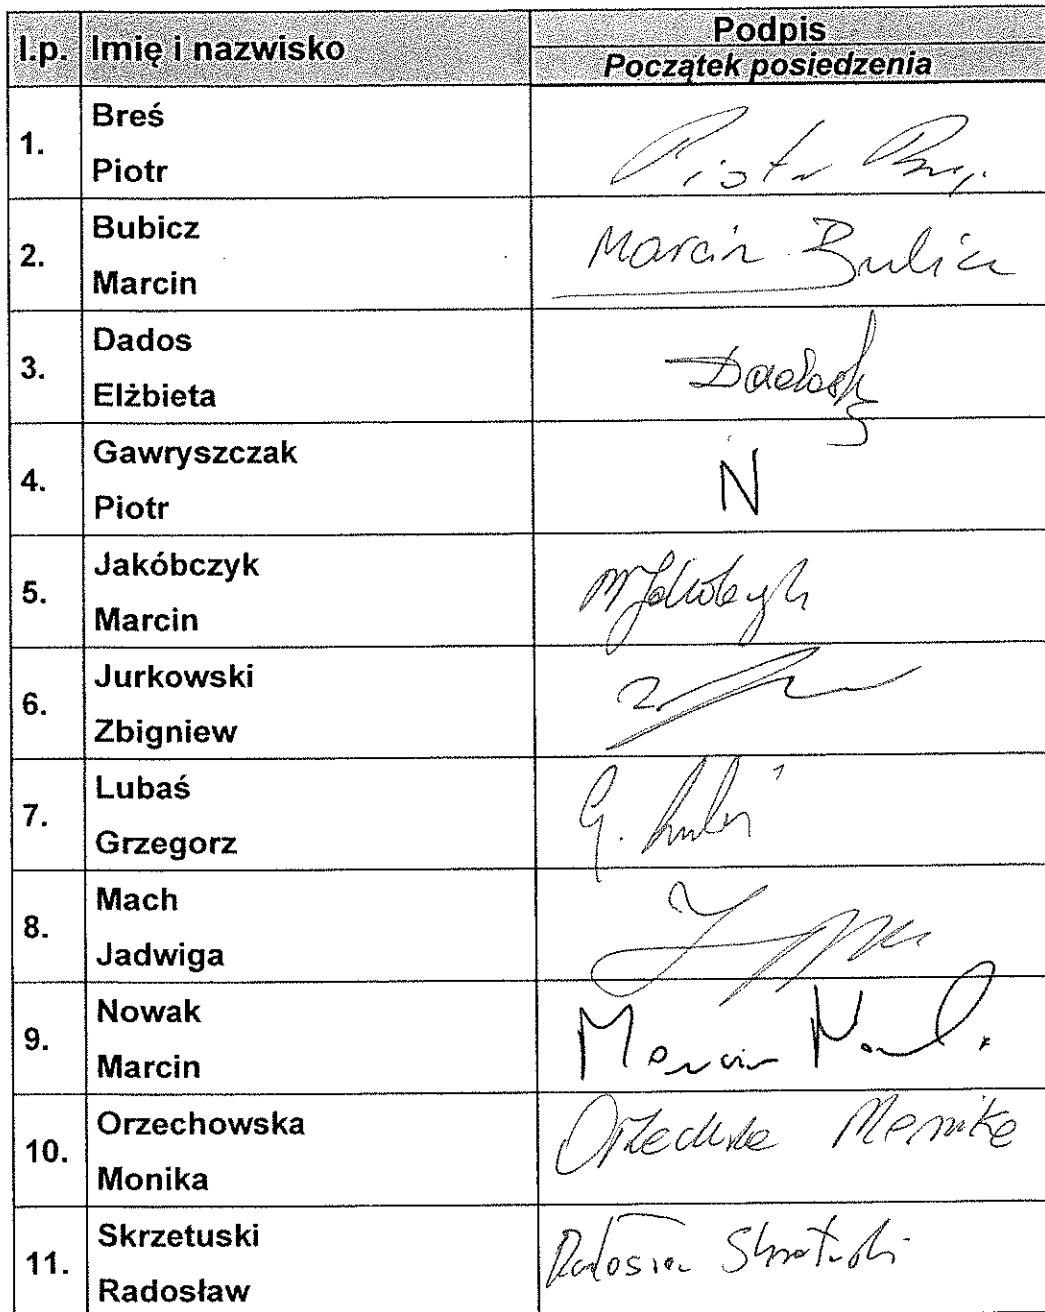 l.p. Imię i nazwisko Podpis
Początek posiedzenia
1. Breś
Piotr
Piotr
2. Bubicz
Marcin
Marcin Bubicz
3. Dados
Elżbieta
4. Gawryszczak
Piotr
N
5. Jakóbczyk
Marcin
6. Jurkowski
Zbigniew
7. Lubaś
Grzegorz
G. Lubaś
8. Mach
Jadwiga
9. Nowak
Marcin
Marcin
10. Orzechowska
Monika
Monika
11. Skrzetuski
Radosław
Radosław Skrzetuski